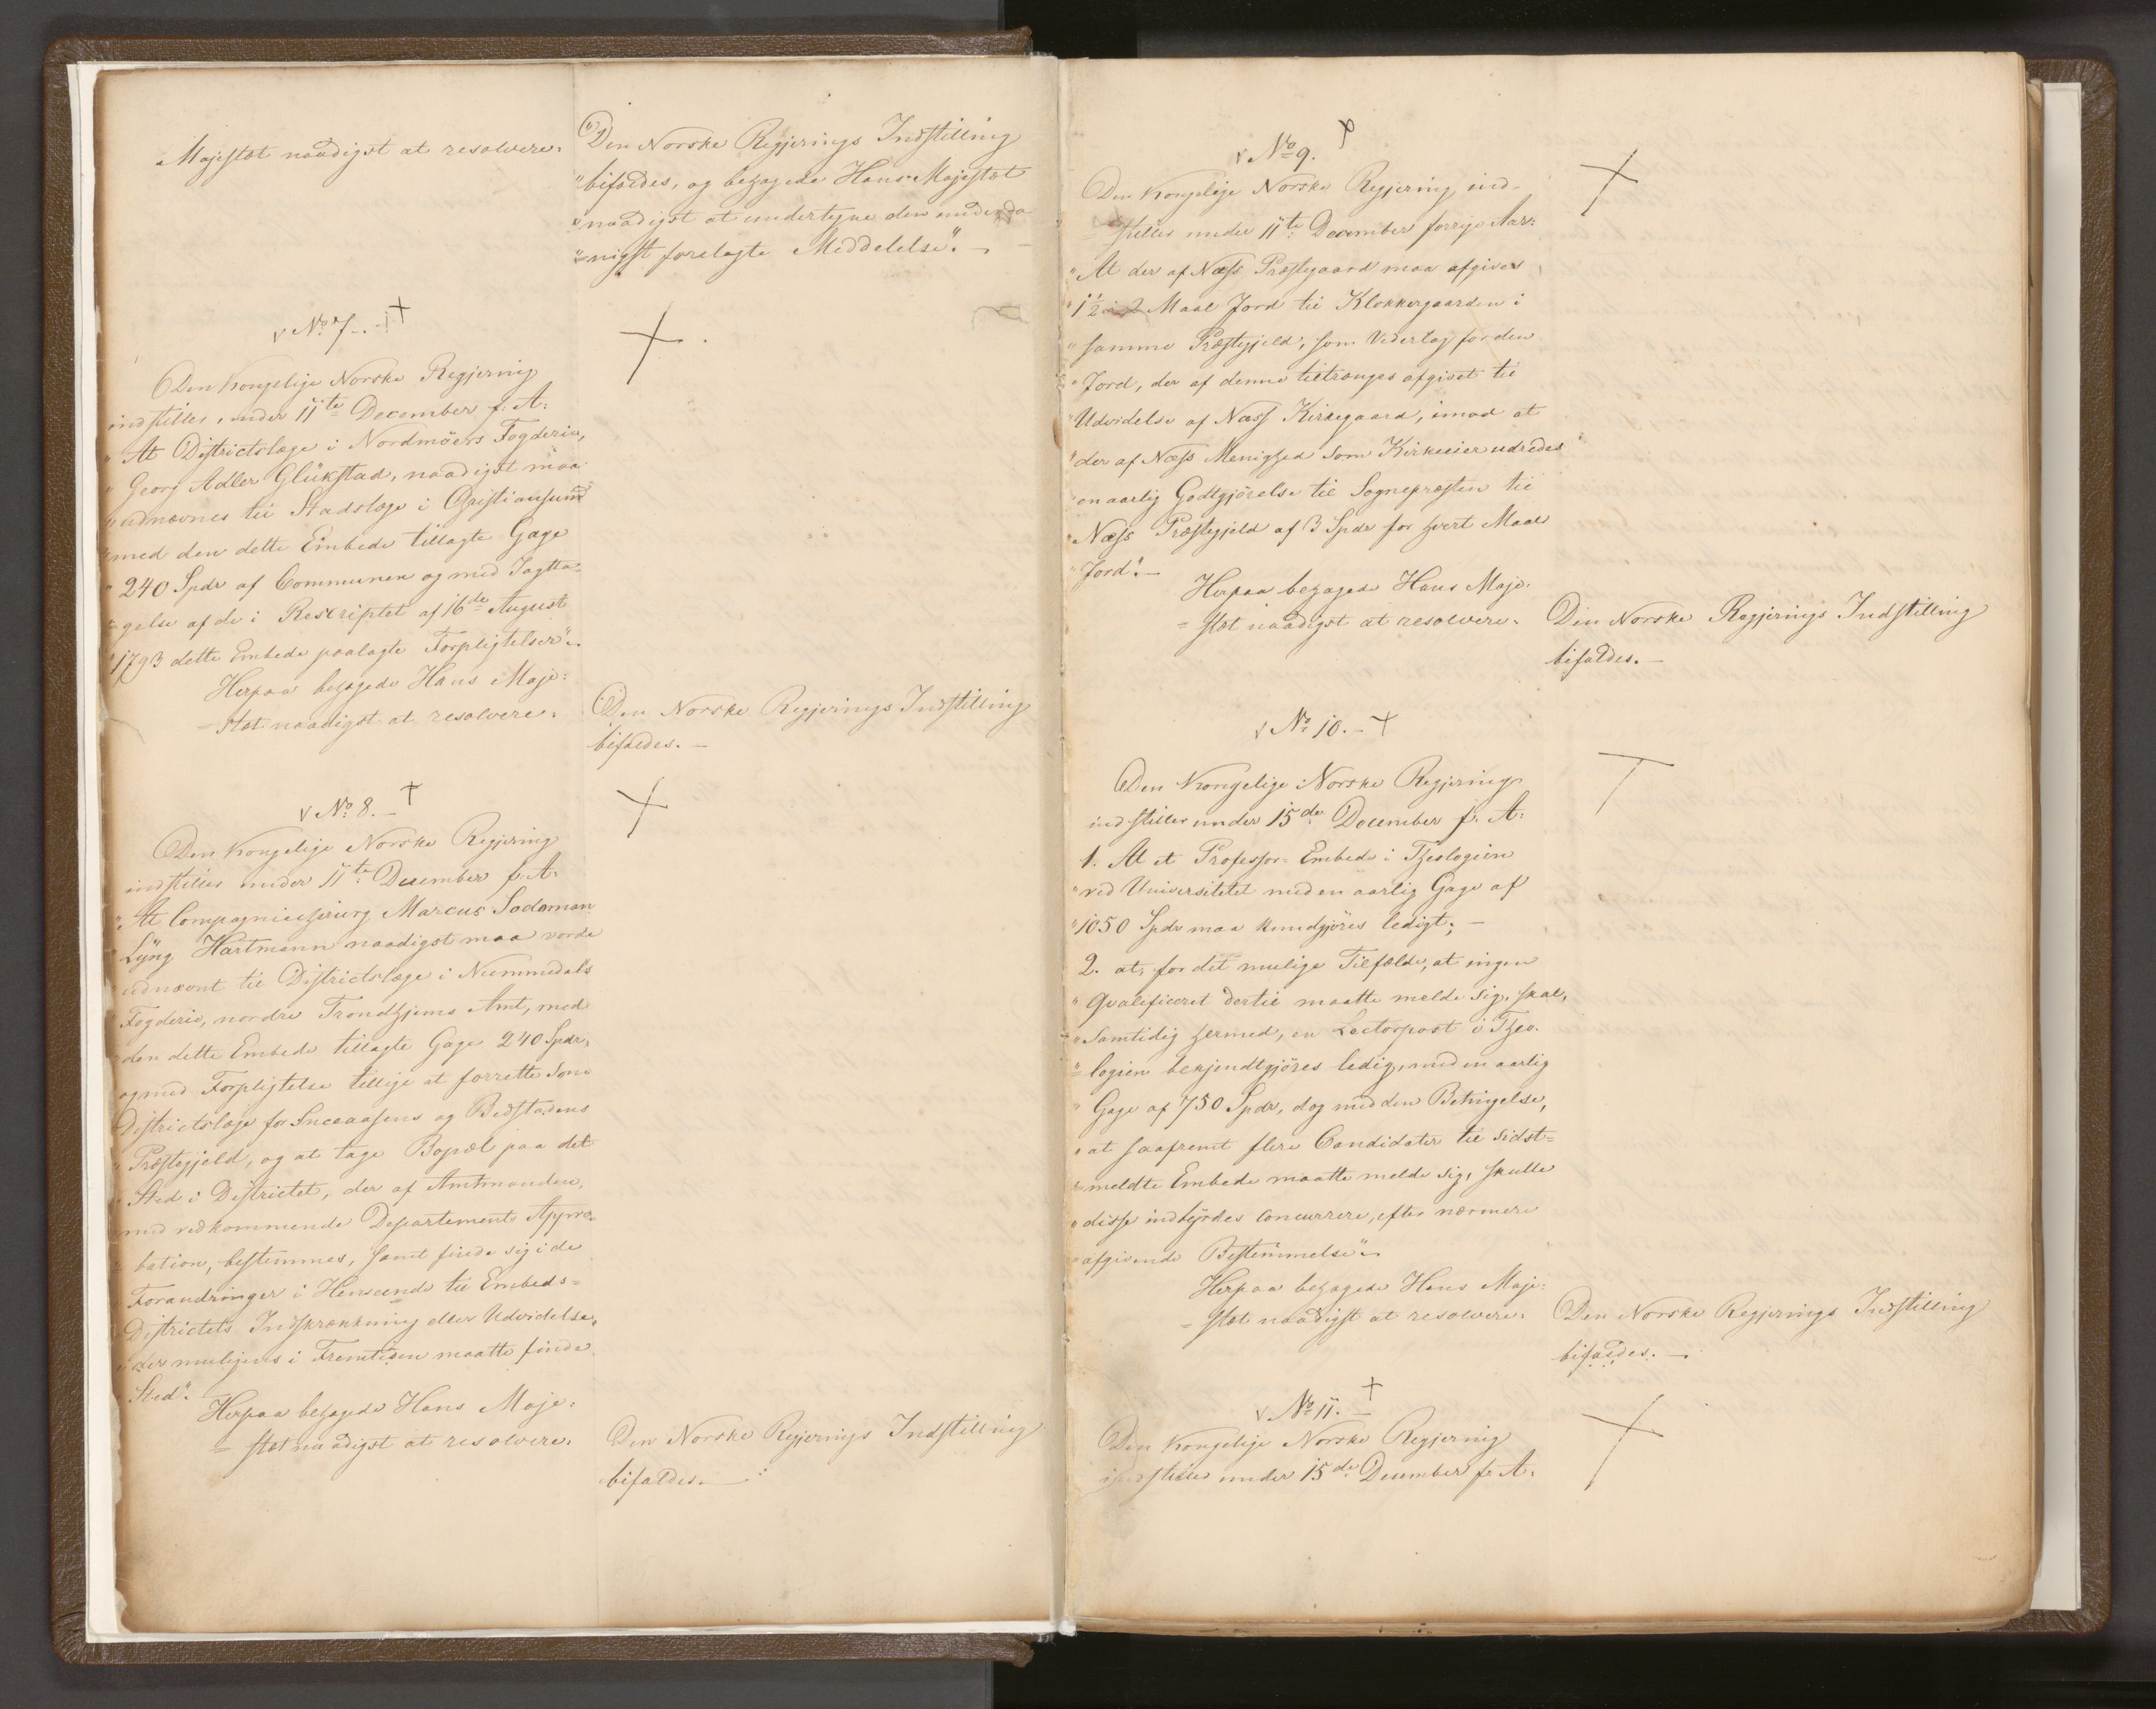 Majestæt naadigst at resolvere.
"Den Norske Regjerings Indstilling
"bifaldes, og behagede Hans Majestæt
"naadigst at undertegne den underda
"=nigst forelagte Meddelelse". —
No 7. —
Den Kongelige Norske Regjering
indstiller, under 11te December f. A:
"At Districtslæge i Nordmöers Fogderie,
"Georg Adler Glükstad, naadigst maa
"udnævnes til Stadslæge i Christiansund
"med den dette Embede tillagte Gage
"240 Spdr af Communen og med Iagtta=
"=gelse af de i Rescriptet af 16de August
"1793 dette Embede paalagte Forpligtelser".
Herpaa behagede Hans Maje:
=stæt naadigst at resolvere.
Den Norske Regjerings Indstilling
bifaldes. —
No 8. —
Den Kongelige Norske Regjering
indstiller under 11te December f. A.
"At Compagniechirurg Marcus Sodeman
"Lyng Hartmann naadigst maa vorde
"udnævnt til Districtslæge i Nummedals
"Fogderie, nordre Trondhjems Amt, med
"den dette Embede tillagte Gage 240 Spdr,
"og med Forpligtelse tillige at forrette som
"Districtslæge for Sneaasens og Bedstadens
"Præstegjeld, og at tage Bopæl paa det
"Sted i Districtet, der af Amtmanden,
"med vedkommende Departements Appro=
"=bation, bestemmes, samt finde sig i de
"Forandringer i Henseende til Embeds=
"Districtets Indskrænkning eller Udvidelse,
"der muligens i Fremtiden maatte finde
"Sted".
Herpaa behagede Hans Maje:
=stæt naadigst at resolvere.
Den Norske Regjerings Indstilling
bifaldes. —
No 9.
Den Kongelige Norske Regjering ind=
=stiller under 11te December forrige Aar:
"At der af Næss Præstegaard maa afgives
"1 1/2 à 2 Maal Jord til Klokkergaarden i
"samme Præstegjeld, som Vederlag for den
"Jord, der af denne tiltrænges afgivet til
"Udvidelse af Næss Kirkegaard, imod at
"der af Næss Menighed som Kirkeeier udredes
"en aarlig Godtgjörelse til Sognepræsten til
"Næss Præstegjeld af 3 Spdr for hvert Maal
"Jord". —
Herpaa behagede Hans Maje:
=stæt naadigst at resolvere.
Den Norske Regjerings Indstilling
bifaldes. —
No 10. —
Den Kongelige Norske Regjering
indstiller under 15de December f. A:
1. At et Professor=Embede i Theologien
"ved Universitetet med en aarlig Gage af
"1050 Spdr maa kundgjöres ledigt; —
2. at, for det mulige Tilfælde, at ingen
"Qvalificeret dertil maatte melde sig, skal,
"samtidig hermed, en Lectorpost i Theo=
"=logien bekjendtgjöres ledig, med en aarlig
"Gage af 750 Spdr, dog med den Betingelse,
"at saafremt flere Candidater til sidst=
"=meldte Embede maatte melde sig, skulle
"disse indbyrdes concurrere, efter nærmere
"afgivende Bestemmelse".
Herpaa behagede Hans Maje:
=stæt naadigst at resolvere.
Den Norske Regjerings Indstilling
bifaldes. —
No 11. —
Den Kongelige Norske Regjering
indstiller under 15de December f. A.